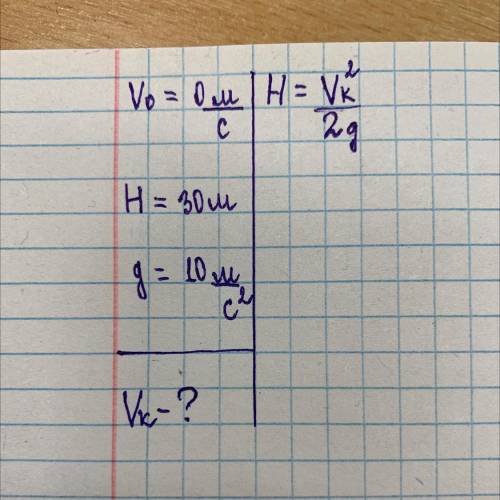 V₀ = 0 м/с
H = 30 м
g = 10 м/с²
Vк - ?
H = Vк²/2g